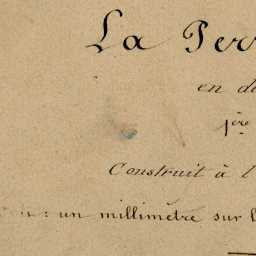 La Perr
en d
1ère
Construit à l
: un millimètre sur l